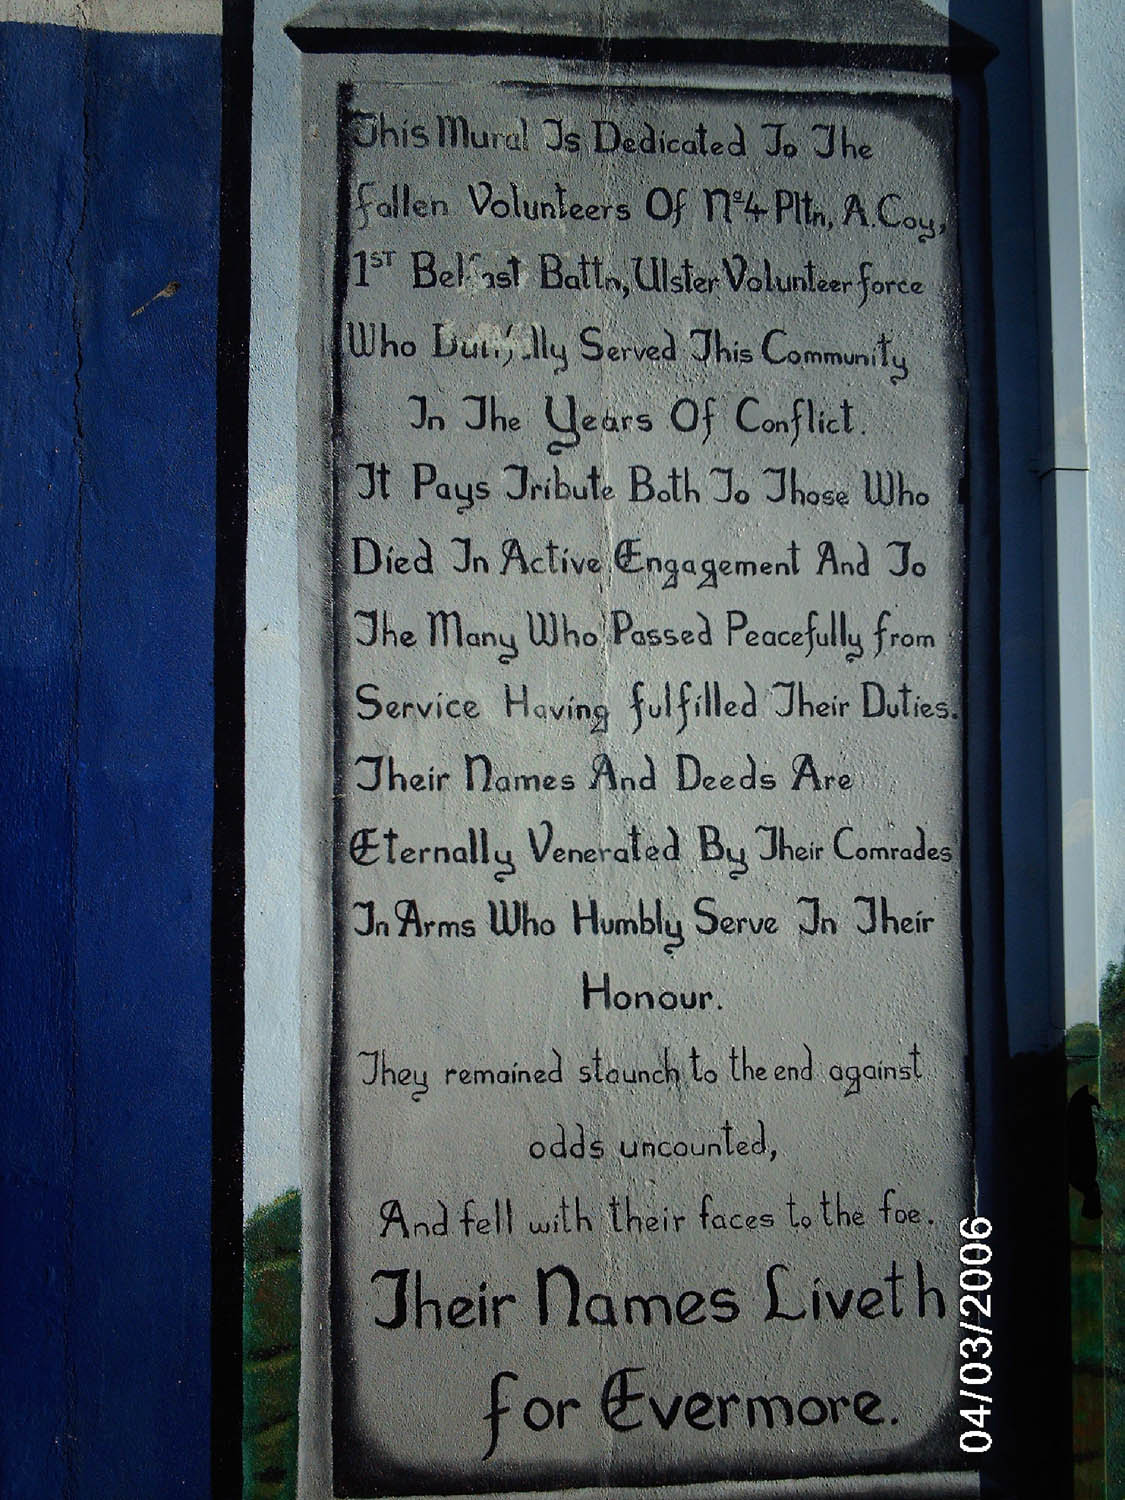 This Mural Is Dedicated To The
fallen Volunteers Of Nº4 Pltn, A.Coy,
1ST Belfast Battn, Ulster Volunteer force
Who Dutifully Served This Community
In The Years Of Conflict.
It Pays Tribute Both To Those Who
Died In Active Engagement And To
The Many Who Passed Peacefully from
Service Having fulfilled Their Duties.
Their Names And Deeds Are
Eternally Venerated By Their Comrades
In Arms Who Humbly Serve In Their
Honour.
They remained staunch to the end against
odds uncounted,
And fell with their faces to the foe.
Their Names Liveth
for Evermore.
04/03/2006